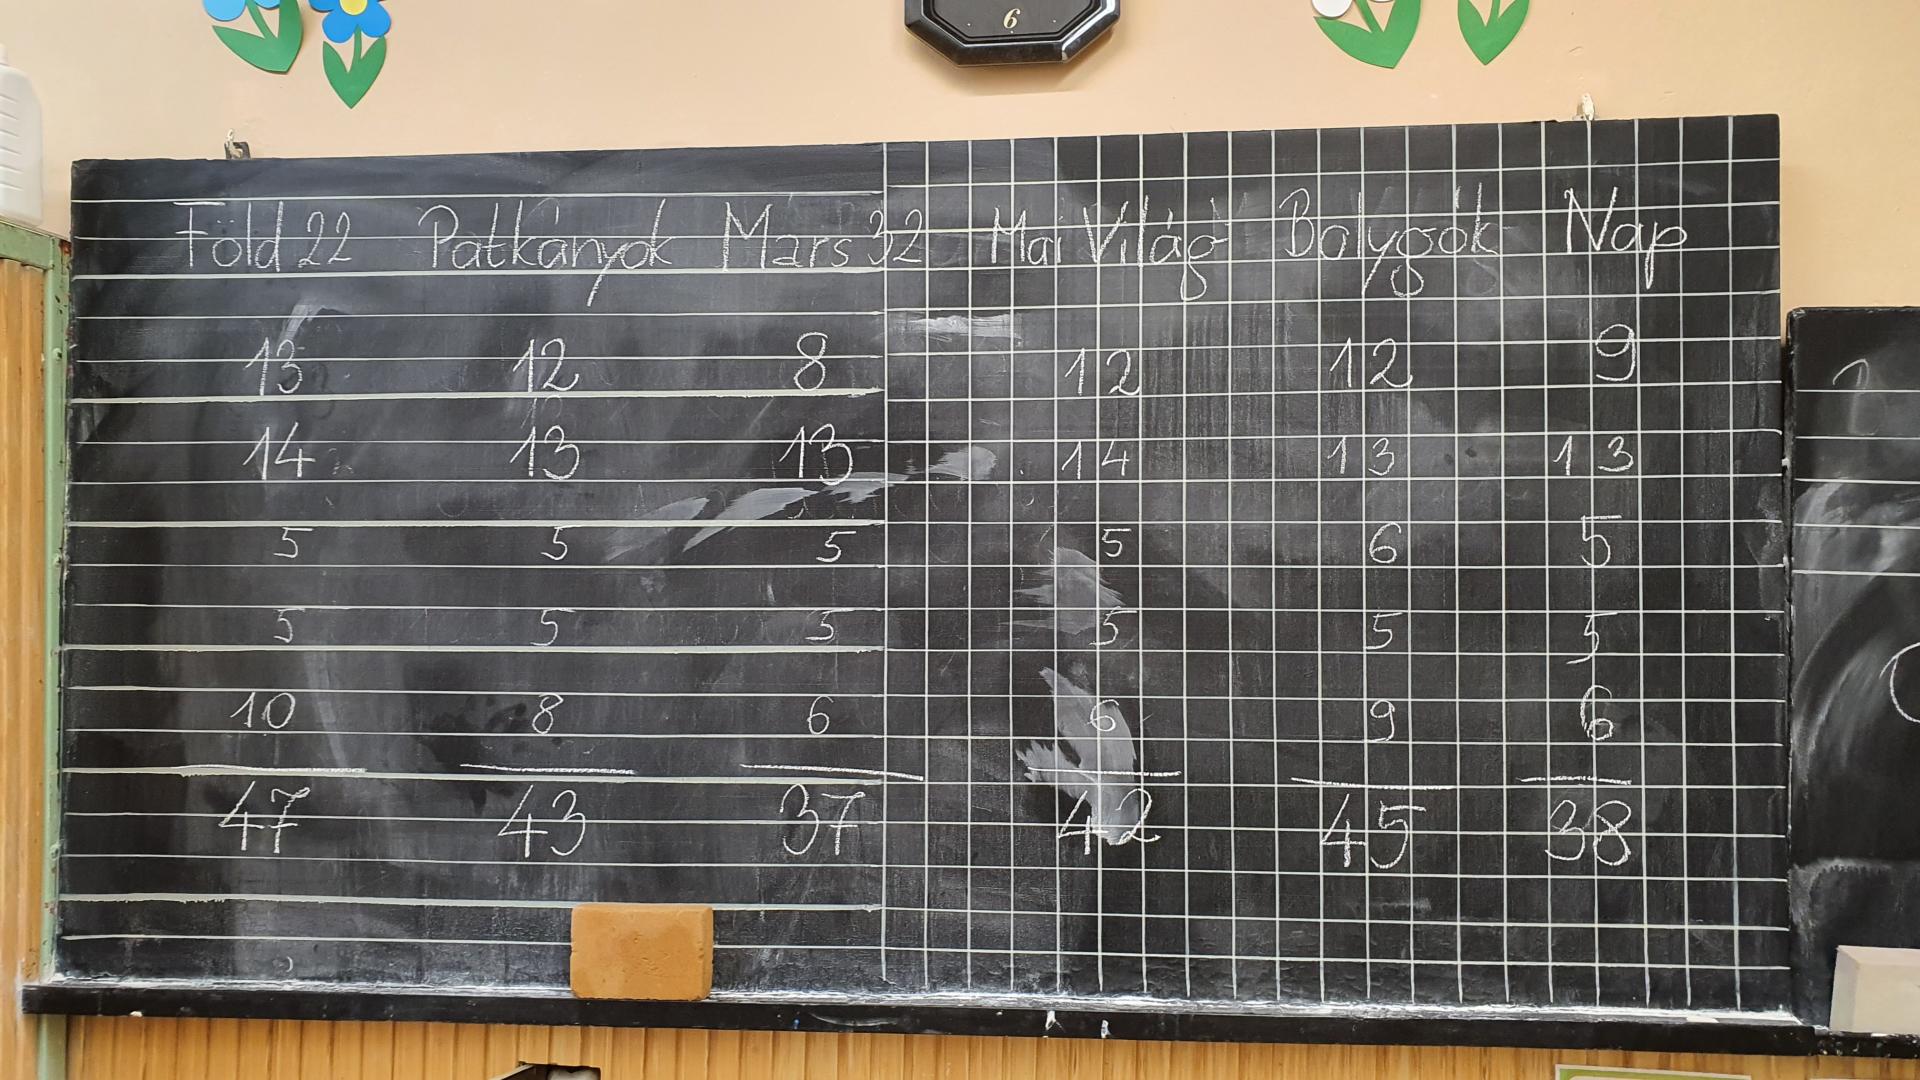 6
Föld 22 Patkányok Mars 32 Mai Világ Bolygók Nap
13 12 8 12 12 9
14 13 13 14 13 13
5 5 5 5 6 5
5 5 5 5 5 5
10 8 6 6 9 6
47 43 37 42 45 38